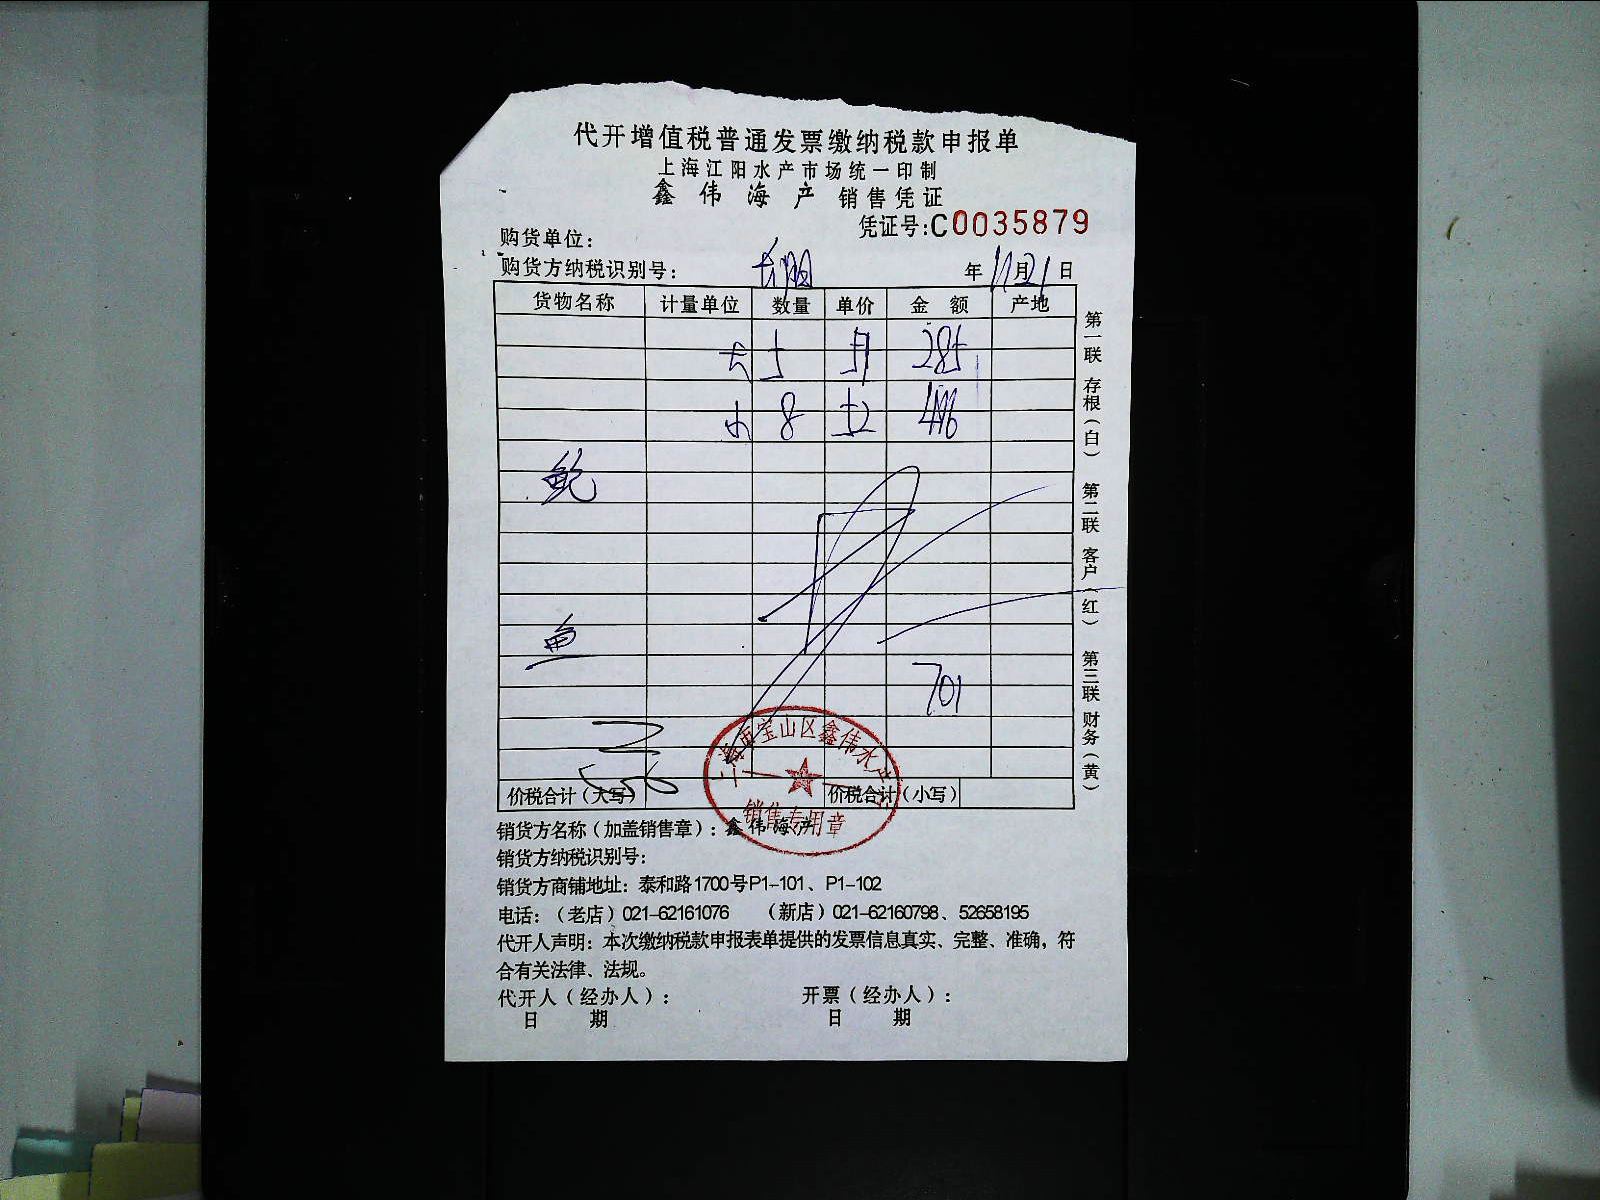 代开增值税普通发票缴纳税款申报单
上海江阳水产市场统一印制
鑫伟海产 销售凭证
凭证号:C0035879
购货单位：
购货方纳税识别号： 年11月21日
货物名称 计量单位 数量 单价 金额 产地
大 5 285
小 8 52 416
鲍
鱼
701
价税合计（大写） 价税合计（小写）
第一联 存根（白） 第二联 客户（红） 第三联 财务（黄）
上海市宝山区鑫伟水产
销售专用章
销货方名称（加盖销售章）：鑫伟海产
销货方纳税识别号：
销货方商铺地址：泰和路1700号P1-101、P1-102
电话：（老店）021-62161076 （新店）021-62160798、52658195
代开人声明：本次缴纳税款申报表单提供的发票信息真实、完整、准确，符
合有关法律、法规。
代开人（经办人）： 开票（经办人）：
日 期 日 期